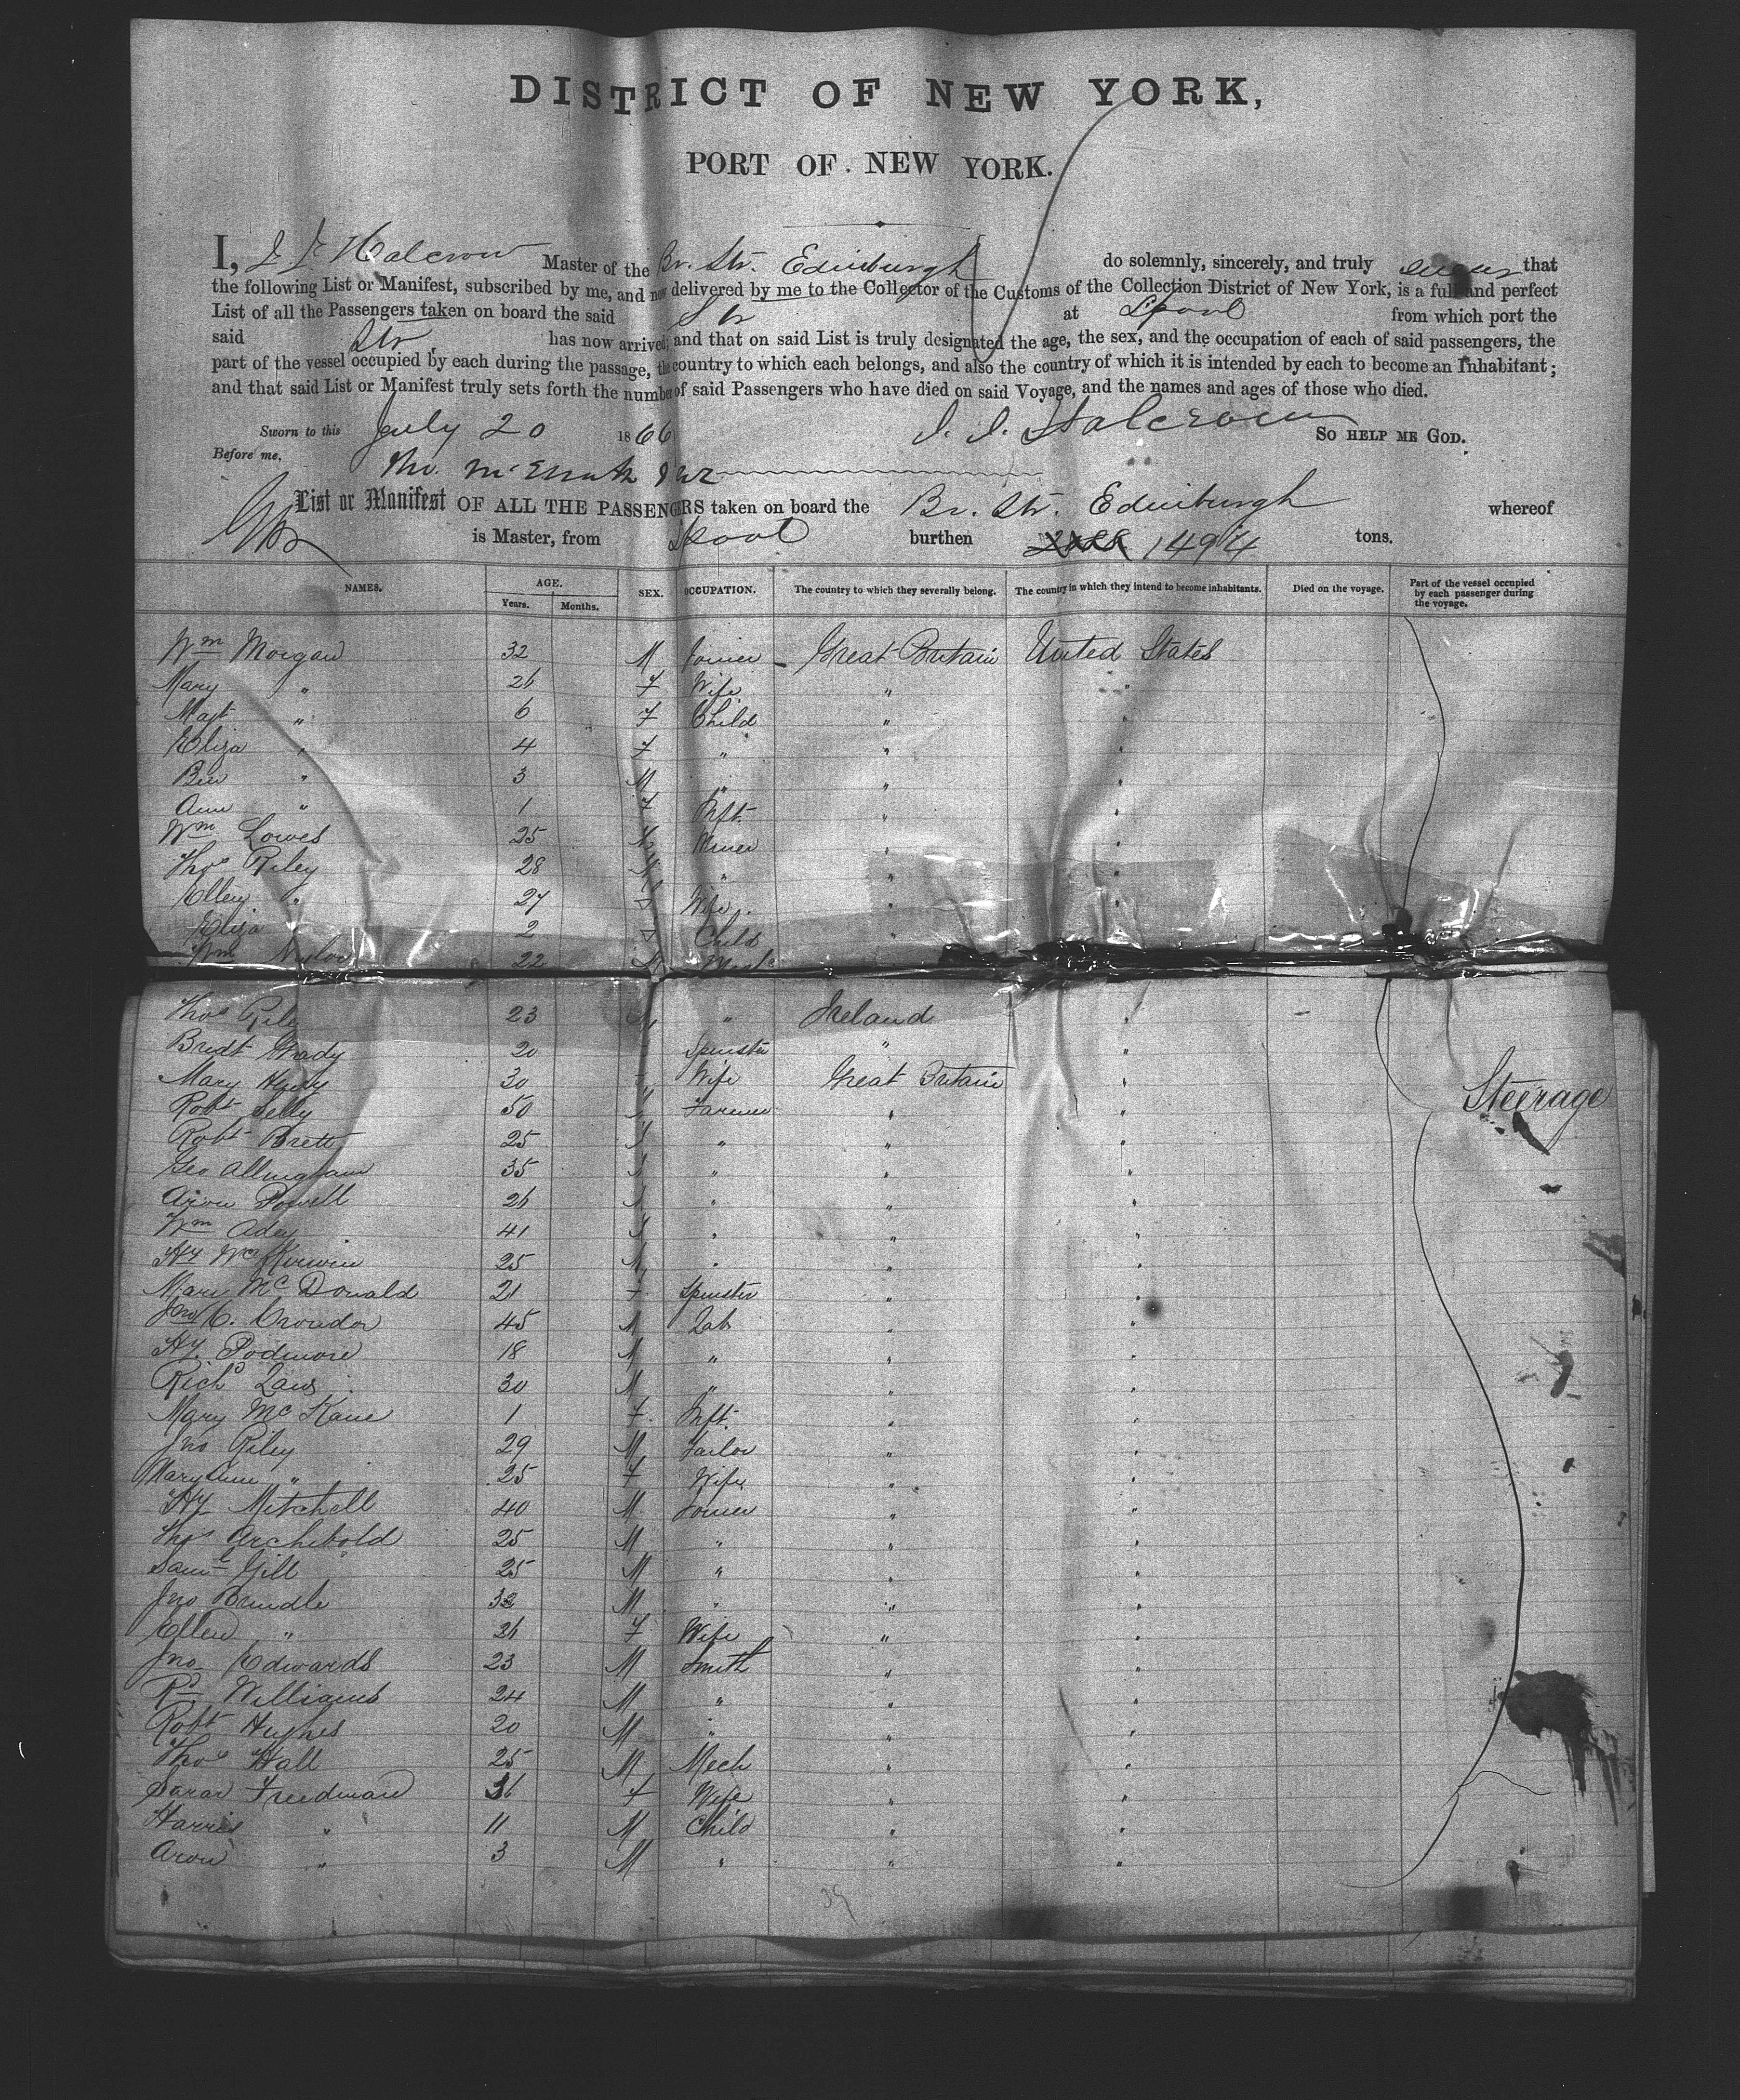 DISTRICT OF NEW YORK,
PORT OF NEW YORK.
I, J. J. Halcrow Master of the Br. Str. Edinburgh do solemnly, sincerely, and truly swear that
the following List or Manifest, subscribed by me, and now delivered by me to the Collector of the Customs of the Collection District of New York, is a full and perfect
List of all the Passengers taken on board the said Str at Lpool from which port the
said Str has now arrived; and that on said List is truly designated the age, the sex, and the occupation of each of said passengers, the
part of the vessel occupied by each during the passage, the country to which each belongs, and also the country of which it is intended by each to become an Inhabitant;
and that said List or Manifest truly sets forth the number of said Passengers who have died on said Voyage, and the names and ages of those who died.
Sworn to this July 20 1866 J. J. Halcrow SO HELP ME GOD.
Before me,
List or Manifest OF ALL THE PASSENGERS taken on board the Br. Str. Edinburgh whereof
is Master, from Lpool burthen 1494 tons.
NAMES. AGE. Years. Months. SEX. OCCUPATION. The country to which they severally belong. The country in which they intend to become inhabitants. Died on the voyage. Part of the vessel occupied by each passenger during the voyage.
Wm Morgan 32 M Joiner Great Britain United States
Mary " 26 F Wife " "
Magt " 6 F Child " "
Eliza " 4 F " " "
Ben " 3 M " " "
Ann " 1 F Inft. " "
Wm Lowes 25 M Miner " "
Thos Riley 28 M " " "
Ellen " 27 F Wife " "
Eliza 2 F Child "
Wm 22 M
Thos Riley 23 M " Ireland "
Bridt Grady 20 Spinster " "
Mary Henry 30 Wife Great Britain "
Robt Selly 50 Farmer " " Steerage
Robt Brett 25 " " "
Geo Allingham 35 " " "
Aron Powell 26 " " "
Wm Adey 41 " " "
Hy 25 M " " "
Mary McDonald 21 F Spinster " "
Jno C. Crowdor 45 M Lab " "
Hy. Podmore 18 M " " "
Richd Laws 30 M " " "
Mary McKane 1 F Inft. " "
Jno Riley 29 M Tailor " "
Mary Ann " 25 F Wife " "
Hy Mitchell 40 M Joiner " "
Thos Archibold 25 M " " "
Saml Gill 25 M " " "
Jno Brindle 32 M " " "
Ellen " 26 F Wife " "
Jno Edwards 23 M Smith " "
Rd Williams 24 M " " "
Robt Hughes 20 M " " "
Thos Hall 25 M Mech " "
Sarar Freedman 36 F Wife " "
Harris " 11 M Child " "
Aron " 3 M " " "
39